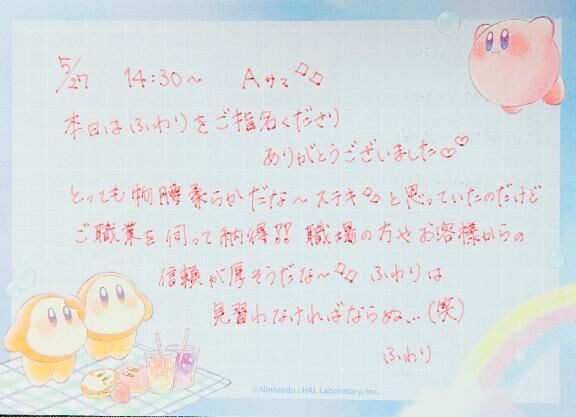 5/27 14:30〜 Aサマ
本日はふわりをご指名くださり
ありがとうございました♡♡
とっても物腰柔らかだな〜ステキ と思っていたのだけど
ご職業を伺って納得!! 職場の方やお客様からの
信頼が厚そうだな〜 ふわりは
見習わなければならぬ...(笑)
ふわり
©Nintendo / HAL Laboratory, Inc.